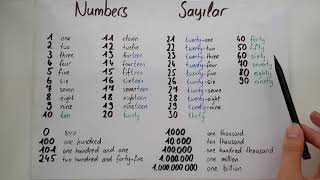 Numbers
Sayılar
1 one
2 two
3 three
4 four
5 five
6 six
7 seven
8 eight
9 nine
10 ten
11 eleven
12 twelve
13 thirteen
14 fourteen
15 fifteen
16 sixteen
17 seventeen
18 eighteen
19 nineteen
20 twenty
21 twenty-one
22 twenty-two
23 twenty-three
24 twenty-four
25 twenty-five
26 twenty-six
27 twenty-seven
28 twenty-eight
29 twenty-nine
30 thirty
40 forty
50 fifty
60 sixty
70 seventy
80 eighty
90 ninety
0 zero
100 one hundred
101 one hundred and one
245 two hundred and forty-five
1000 one thousand
10.000 ten thousand
100.000 one hundred thousand
1.000.000 one million
1.000.000.000 one billion